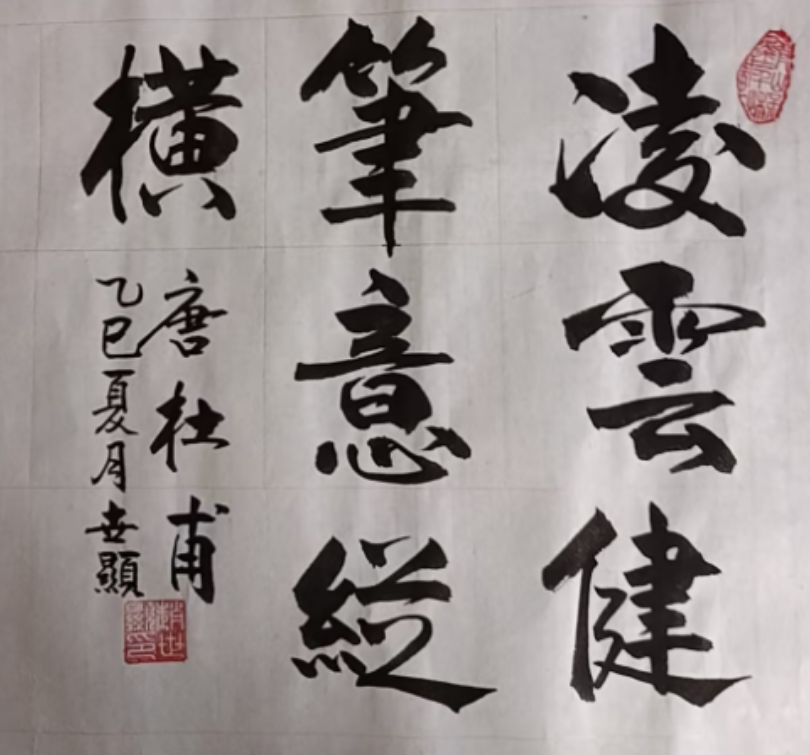 凌雲健
筆意縱
橫
唐杜甫
乙巳夏月世顯